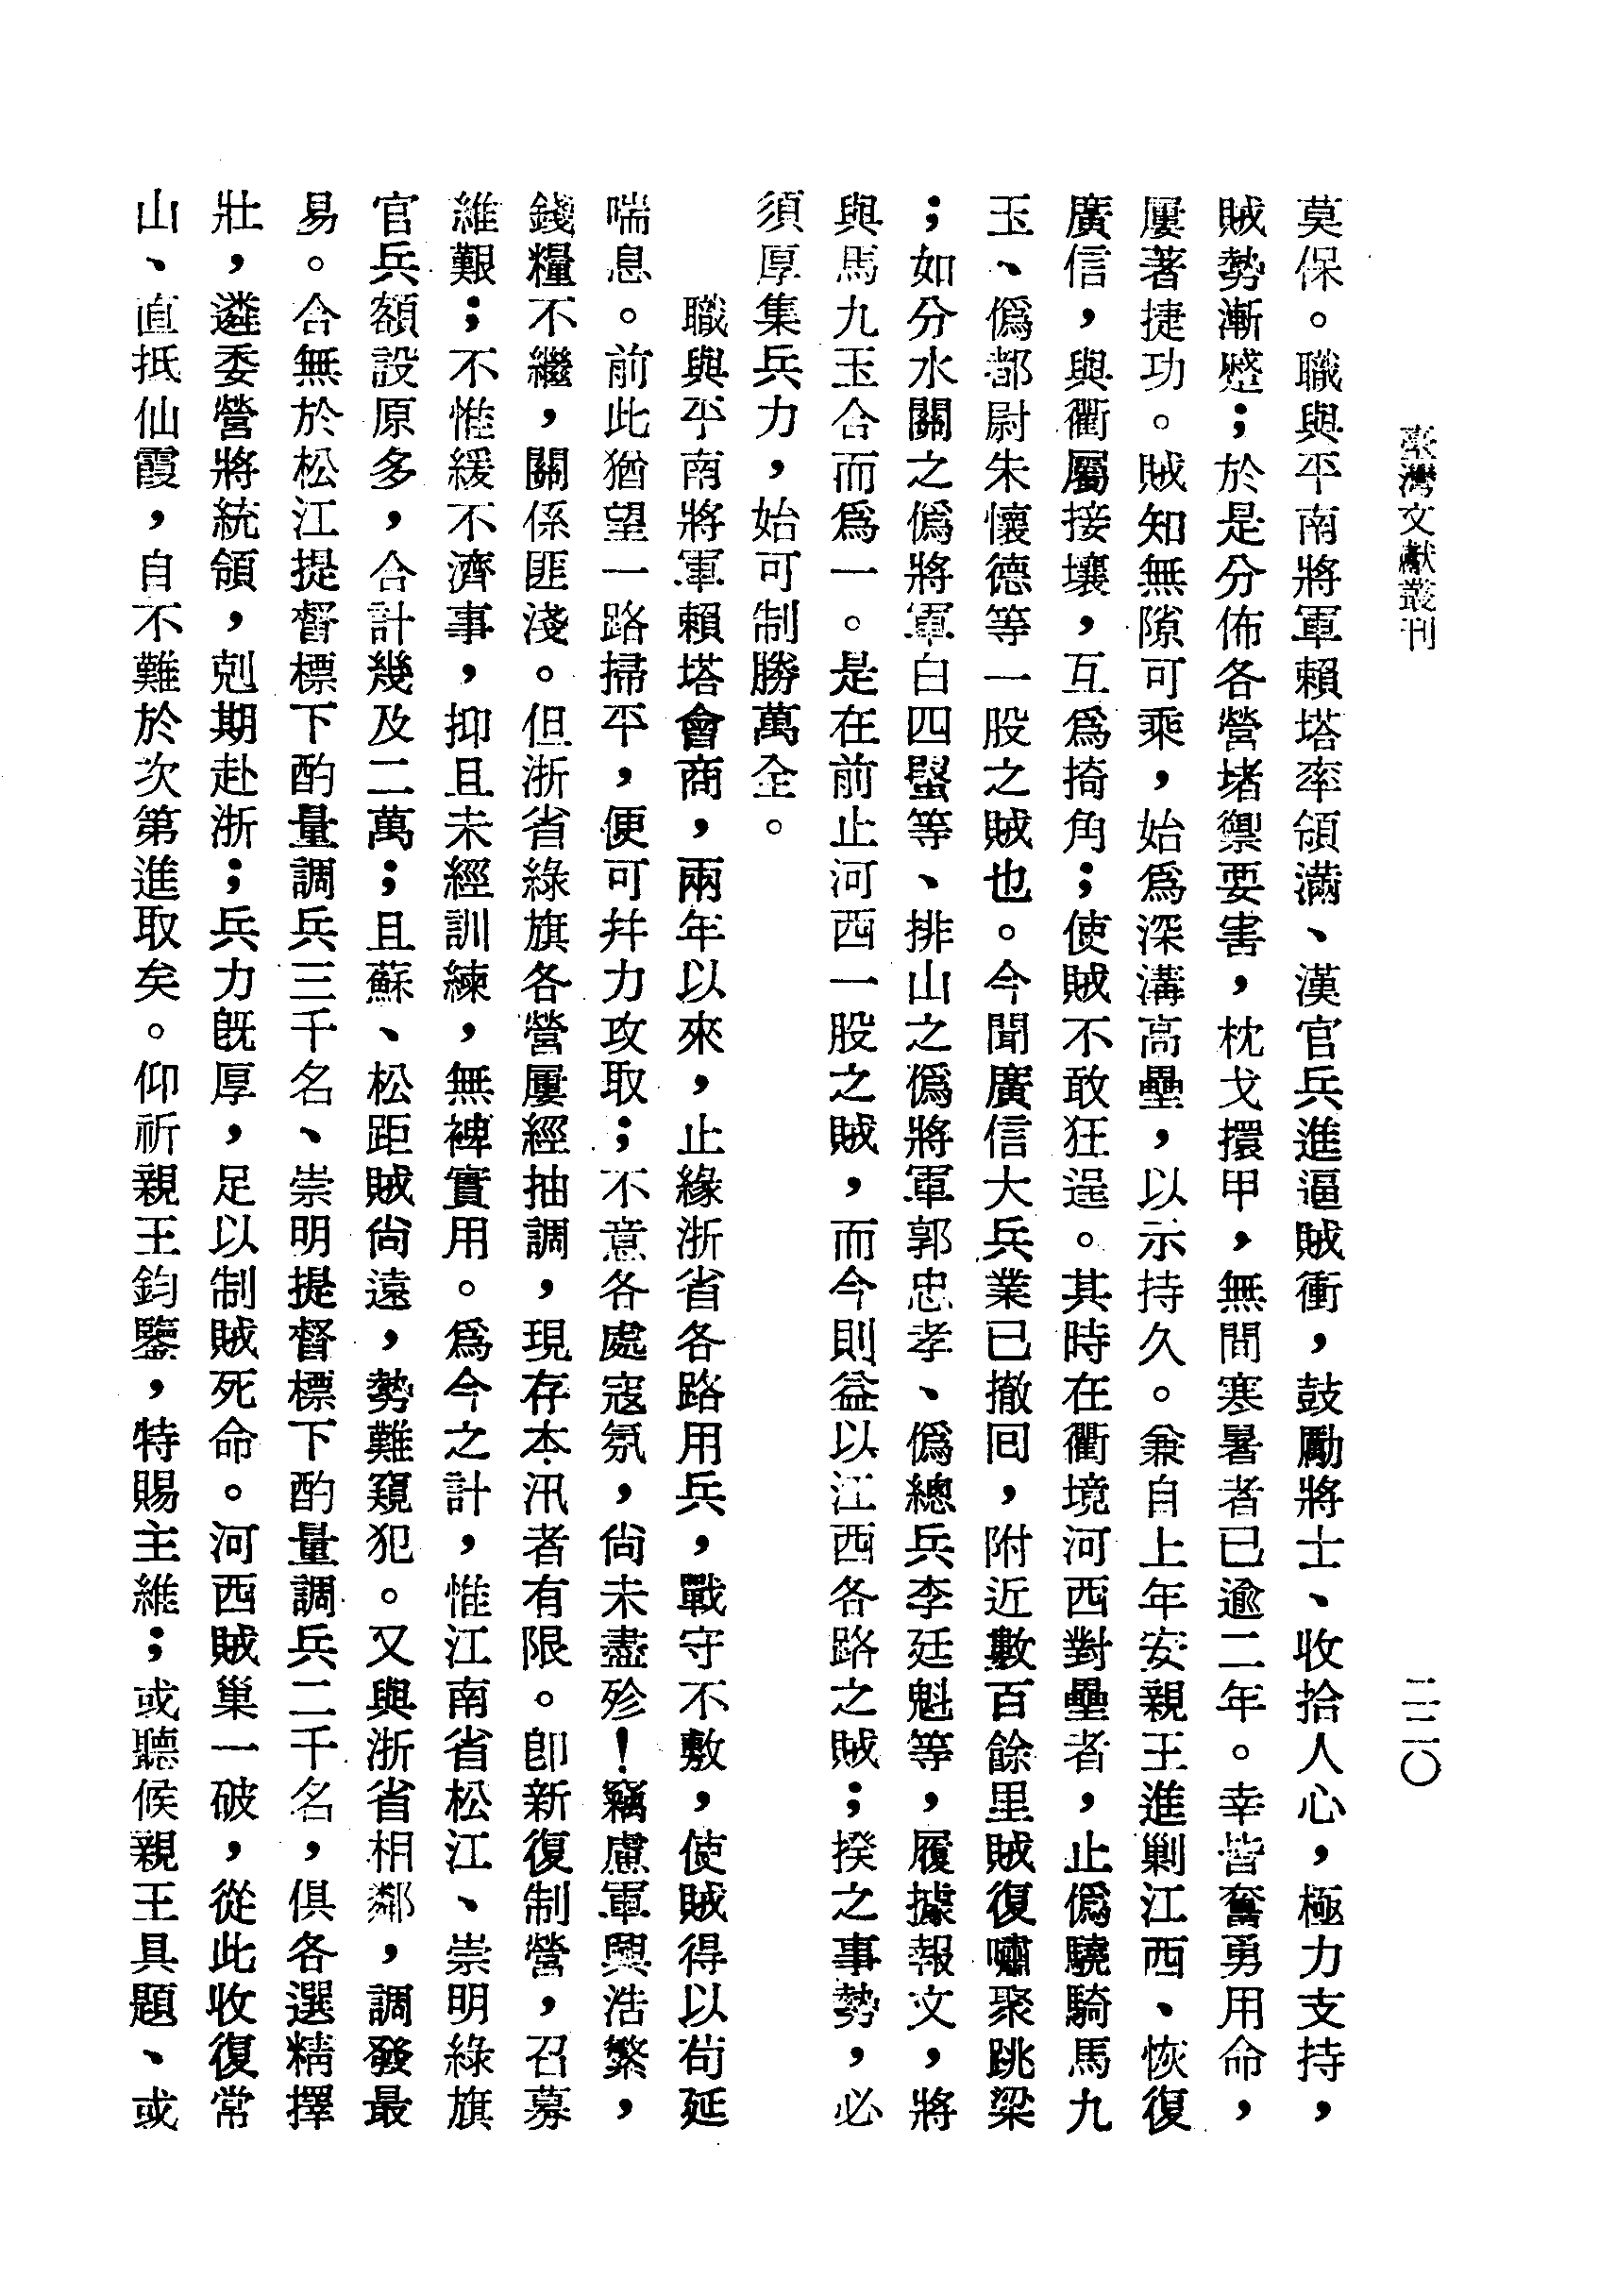 臺灣文獻叢刊
二三〇
莫保。職與平南將軍賴塔率領滿、漢官兵進逼賊衝，鼓勵將士、收拾人心，極力支持，
賊勢漸蹙；於是分佈各營堵禦要害，枕戈擐甲，無間寒暑者已逾二年。幸皆奮勇用命，
屢著捷功。賊知無隙可乘，始爲深溝高壘，以示持久。兼自上年安親王進剿江西、恢復
廣信，與衢屬接壤，互爲掎角；使賊不敢狂逞。其時在衢境河西對壘者，止僞驍騎馬九
玉、僞都尉朱懷德等一股之賊也。今聞廣信大兵業已撤回，附近數百餘里賊復嘯聚跳梁
；如分水關之僞將軍白四璽等、排山之僞將軍郭忠孝、僞總兵李廷魁等，履據報文，將
與馬九玉合而爲一。是在前止河西一股之賊，而今則益以江西各路之賊；揆之事勢，必
須厚集兵力，始可制勝萬全。
職與平南將軍賴塔會商，兩年以來，止緣浙省各路用兵，戰守不敷，使賊得以苟延
喘息。前此猶望一路掃平，便可幷力攻取；不意各處寇氛，尙未盡殄！竊慮軍興浩繁，
錢糧不繼，關係匪淺。但浙省綠旗各營屢經抽調，現存本汛者有限。卽新復制營，召募
維艱；不惟緩不濟事，抑且未經訓練，無裨實用。爲今之計，惟江南省松江、崇明綠旗
官兵額設原多，合計幾及二萬；且蘇、松距賊尙遠，勢難窺犯。又與浙省相鄰，調發最
易。合無於松江提督標下酌量調兵三千名、崇明提督標下酌量調兵二千名，俱各選精擇
壯，遴委營將統領，剋期赴浙；兵力旣厚，足以制賊死命。河西賊巢一破，從此收復常
山、直抵仙霞，自不難於次第進取矣。仰祈親王鈞鑒，特賜主維；或聽候親王具題、或